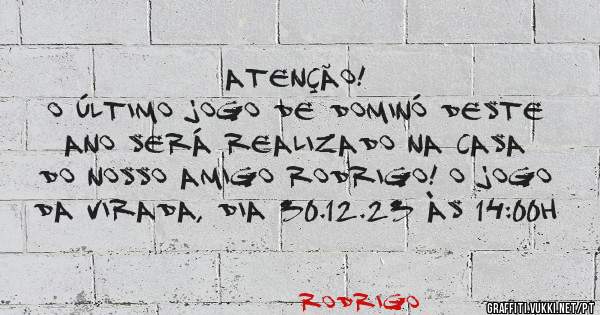 ATENÇÃO!
O ÚLTIMO JOGO DE DOMINÓ DESTE
ANO SERÁ REALIZADO NA CASA
DO NOSSO AMIGO RODRIGO! O JOGO
DA VIRADA, DIA 30.12.23 ÀS 14:00H
RODRIGO
GRAFFITI.VUKKI.NET/PT